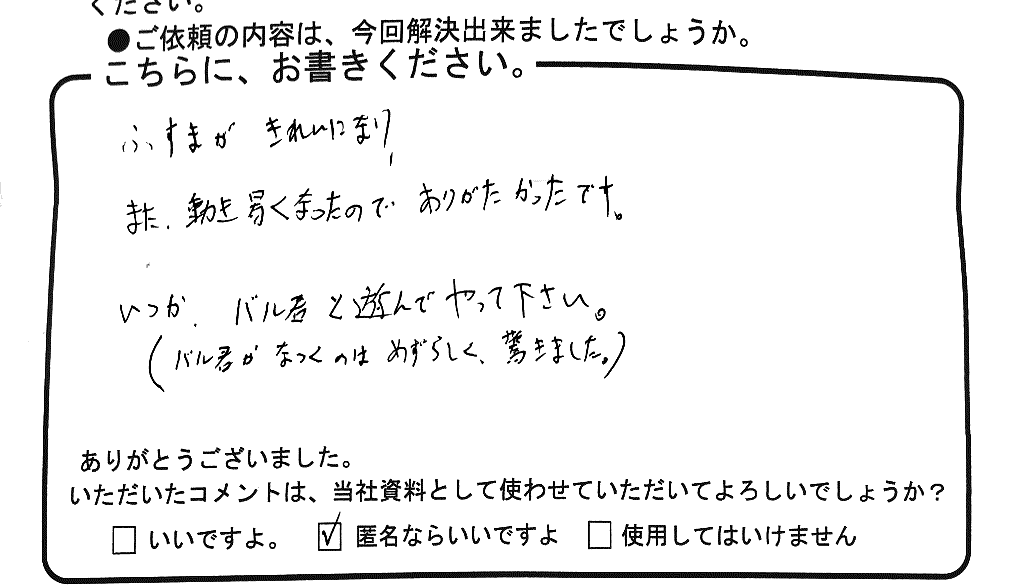 ください。
●ご依頼の内容は、今回解決出来ましたでしょうか。
こちらに、お書きください。
ふすまが きれいになり、
また、動き易くなったので ありがたかったです。
いつか、バル君と遊んでやって下さい。
(バル君がなつくのはめずらしく、驚きました。)
ありがとうございました。
いただいたコメントは、当社資料として使わせていただいてよろしいでしょうか？
□ いいですよ。 ☑ 匿名ならいいですよ □ 使用してはいけません